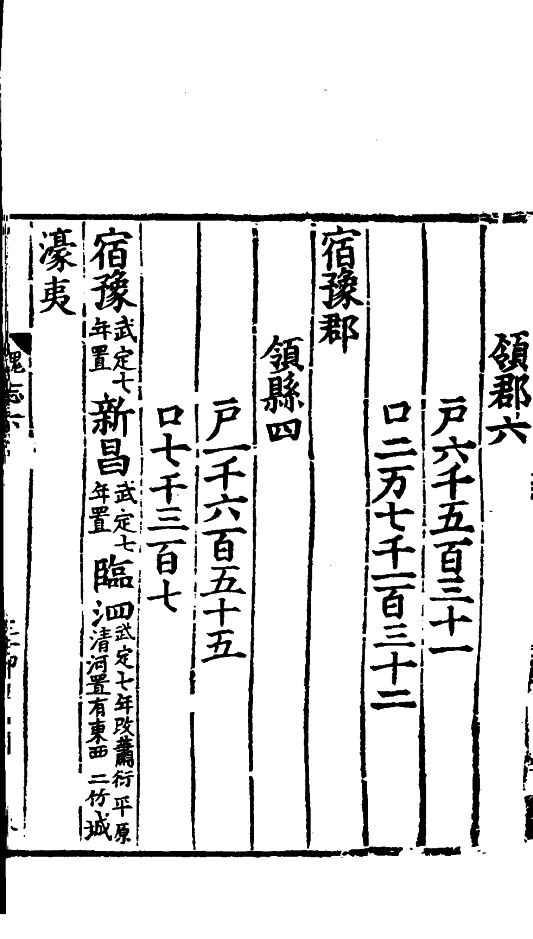 領郡六
戸六千五百三十一
口二万七千一百三十二
宿豫郡
領縣四
戸一千六百五十五
口七千三百七
宿豫武定七年置新昌武定七年置臨泗武定七年改蕭衍平原清河置有東西二竹城
濠夷